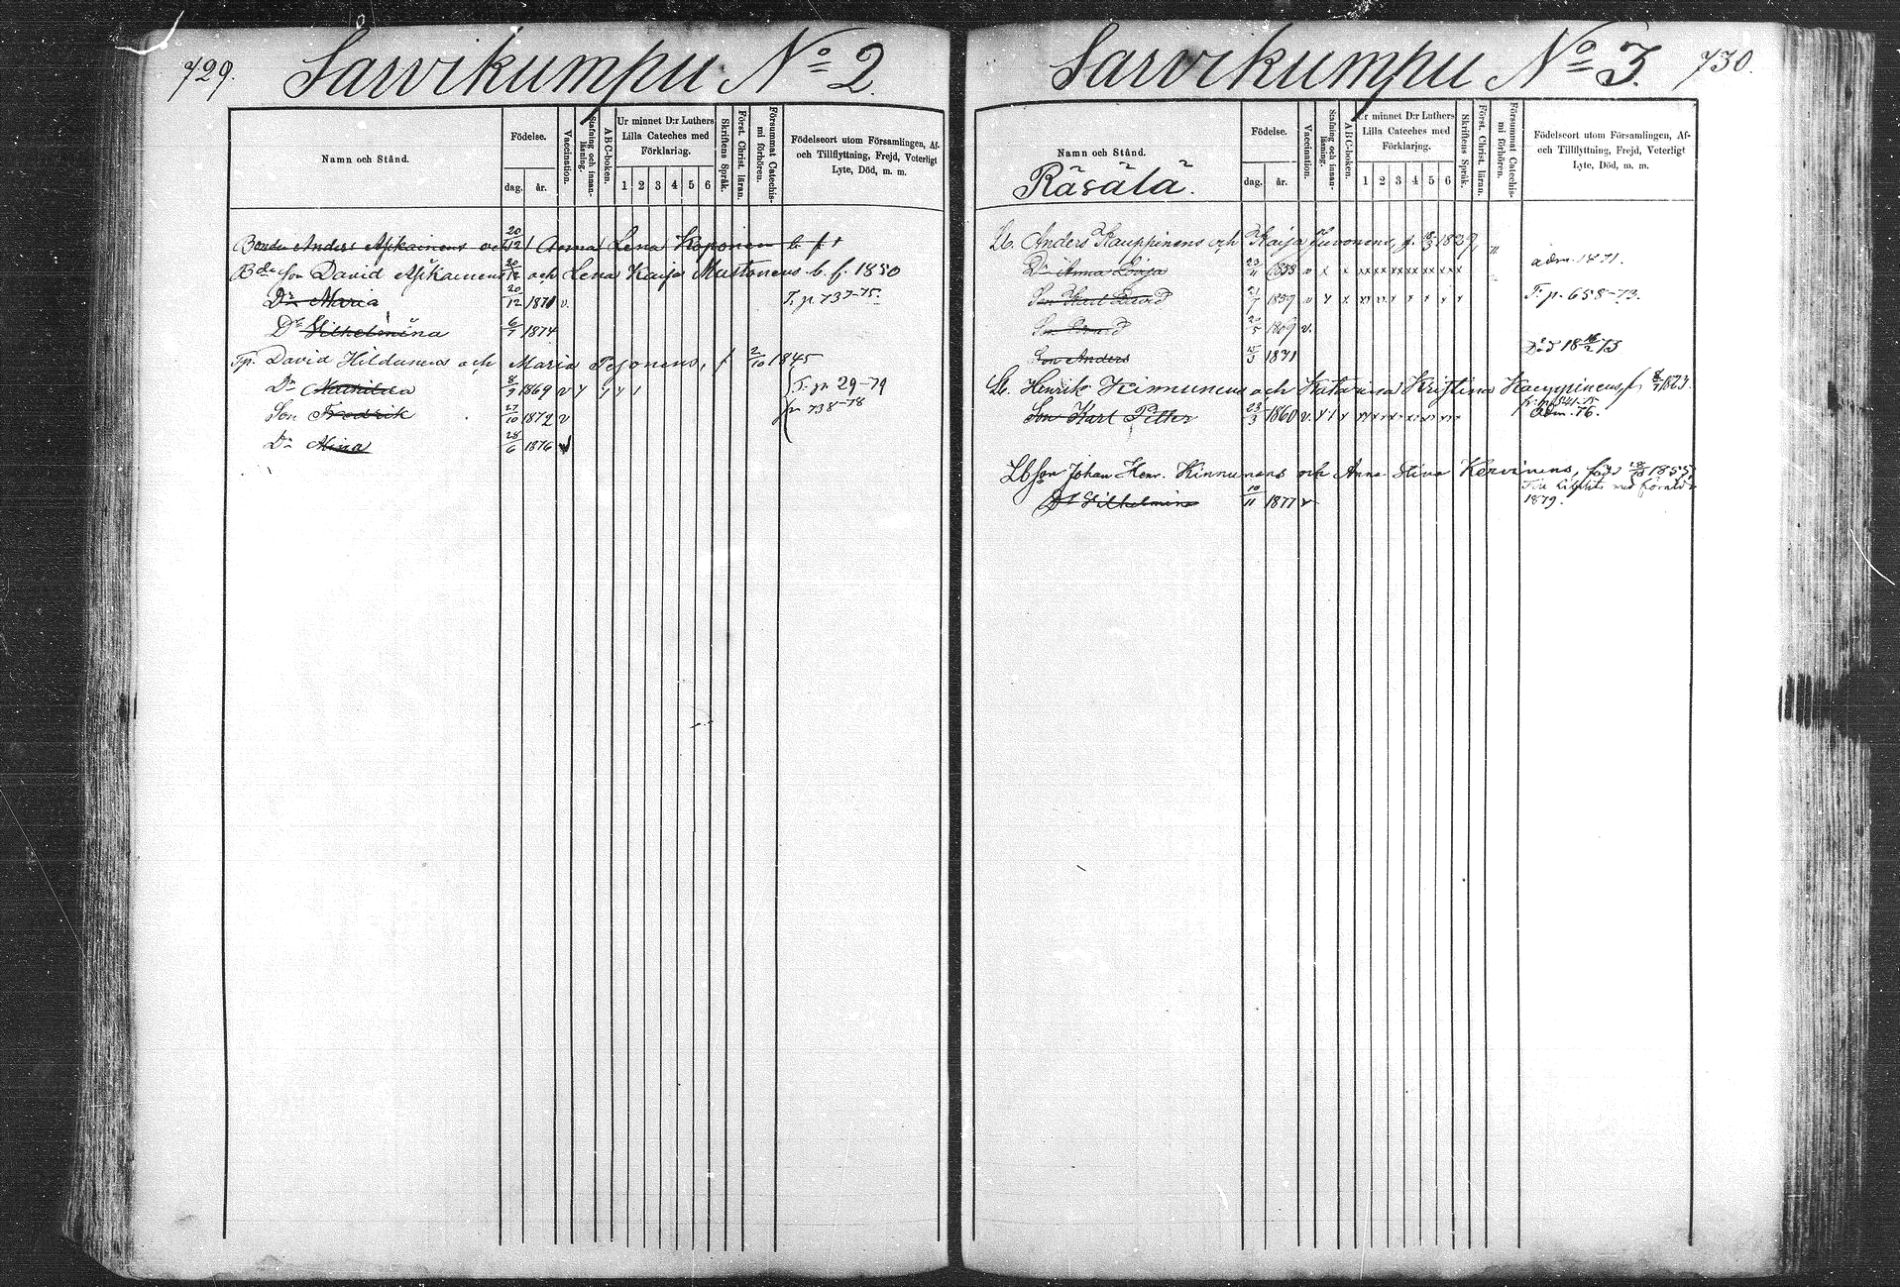 729. Sarvikumpu No 2.
Namn och Stånd.
Födelse.
dag. år.
Vaccination.
Stafning och innan-läsning.
A B C-boken.
Ur minnet D:r Luthers Lilla Cateches med Förklaring.
1 2 3 4 5 6
Skriftens Språk.
Först. Christ. läran.
Försummat Catechismi förhören.
Födelseort utom Församlingen, Af- och Tillflyttning, Frejd, Veterligt Lyte, Död, m. m.
Bonden Anders Asikainens och Anna Lena Koponen b. f. +
Bde son David Asikainens och Lena Kaisa Mustonens b. f. 1850
Dr Maria 20/12 1871 v. T. p 737-75.
Dr Wilhelmina 6/7 1874
Tp. David Hildunens och Maria Pesonens, f 2/10 1845
Dr Mathilda 8/9 1869 v T. p 29-79
Son Fredrik 27/10 1872 v p 738-78
Dr Mina 28/6 1876 v
Sarvikumpu No 3. 730.
Namn och Stånd.
Räsälä.
Födelse.
dag. år.
Vaccination.
Stafning och innan-läsning.
A B C-boken.
Ur minnet D:r Luthers Lilla Cateches med Förklaring.
1 2 3 4 5 6
Skriftens Språk.
Först. Christ. läran.
Försummat Catechismi förhören.
Födelseort utom Församlingen, Af- och Tillflyttning, Frejd, Veterligt Lyte, Död, m. m.
Lb. Anders Kauppinens och Kaisa Juvonens, f. 1829
Dr Anna Lovija 23/11 v x x x x x x x x x x adm. 1871.
Son Karl David 21/7 v x x x x x x x x x T. p. 658-73.
Son Edvard 1869 v.
Son Anders 1871 Död 18 16/2 73
Lb. Henrik Kinnunens och Katarina Kristina Kauppinens f. 8/7 1823.
Son Karl Petter 23/3 1860 v. adm. 76.
Lbson Johan Henr. Kinnunens och Anna Stina Kervinens, född 1855
Dr Wilhelmina 10/11 1877 v 1879.